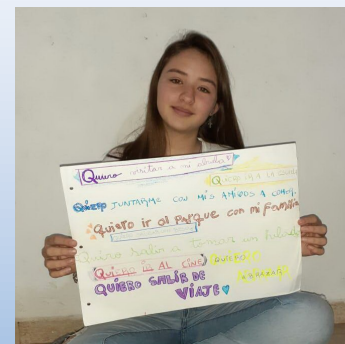 Quiero visitar a mi abuela
Quiero ir a la
Quiero JUNTARME CON MIS AMIGOS A COMER.
Quiero ir al PARQUE con mi familia
Quiero salir a tomar un helado
QUIERO IR AL CINE QUIERO
QUIERO SALIR DE
VIAJE